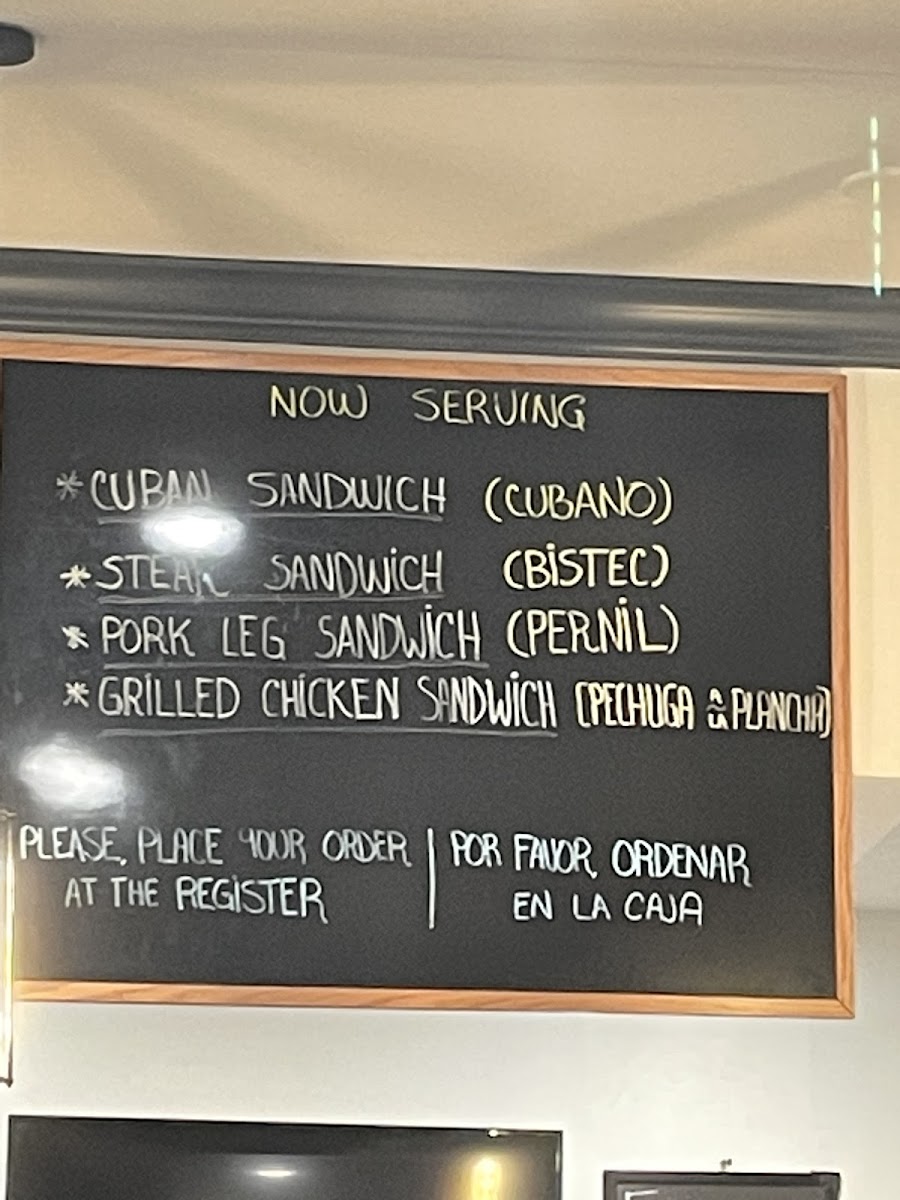 NOW SERVING
* CUBAN SANDWICH (CUBANO)
* STEAK SANDWiCH (BiSTEC)
* PORK LEG SANDWiCH (PERNiL)
* GRiLLED CHiCKEN SANDWiCH (PECHUGA a PLANCHA)
PLEASE, PLACE YOUR ORDER
AT THE REGiSTER
POR FAVOR, ORDENAR
EN LA CAJA